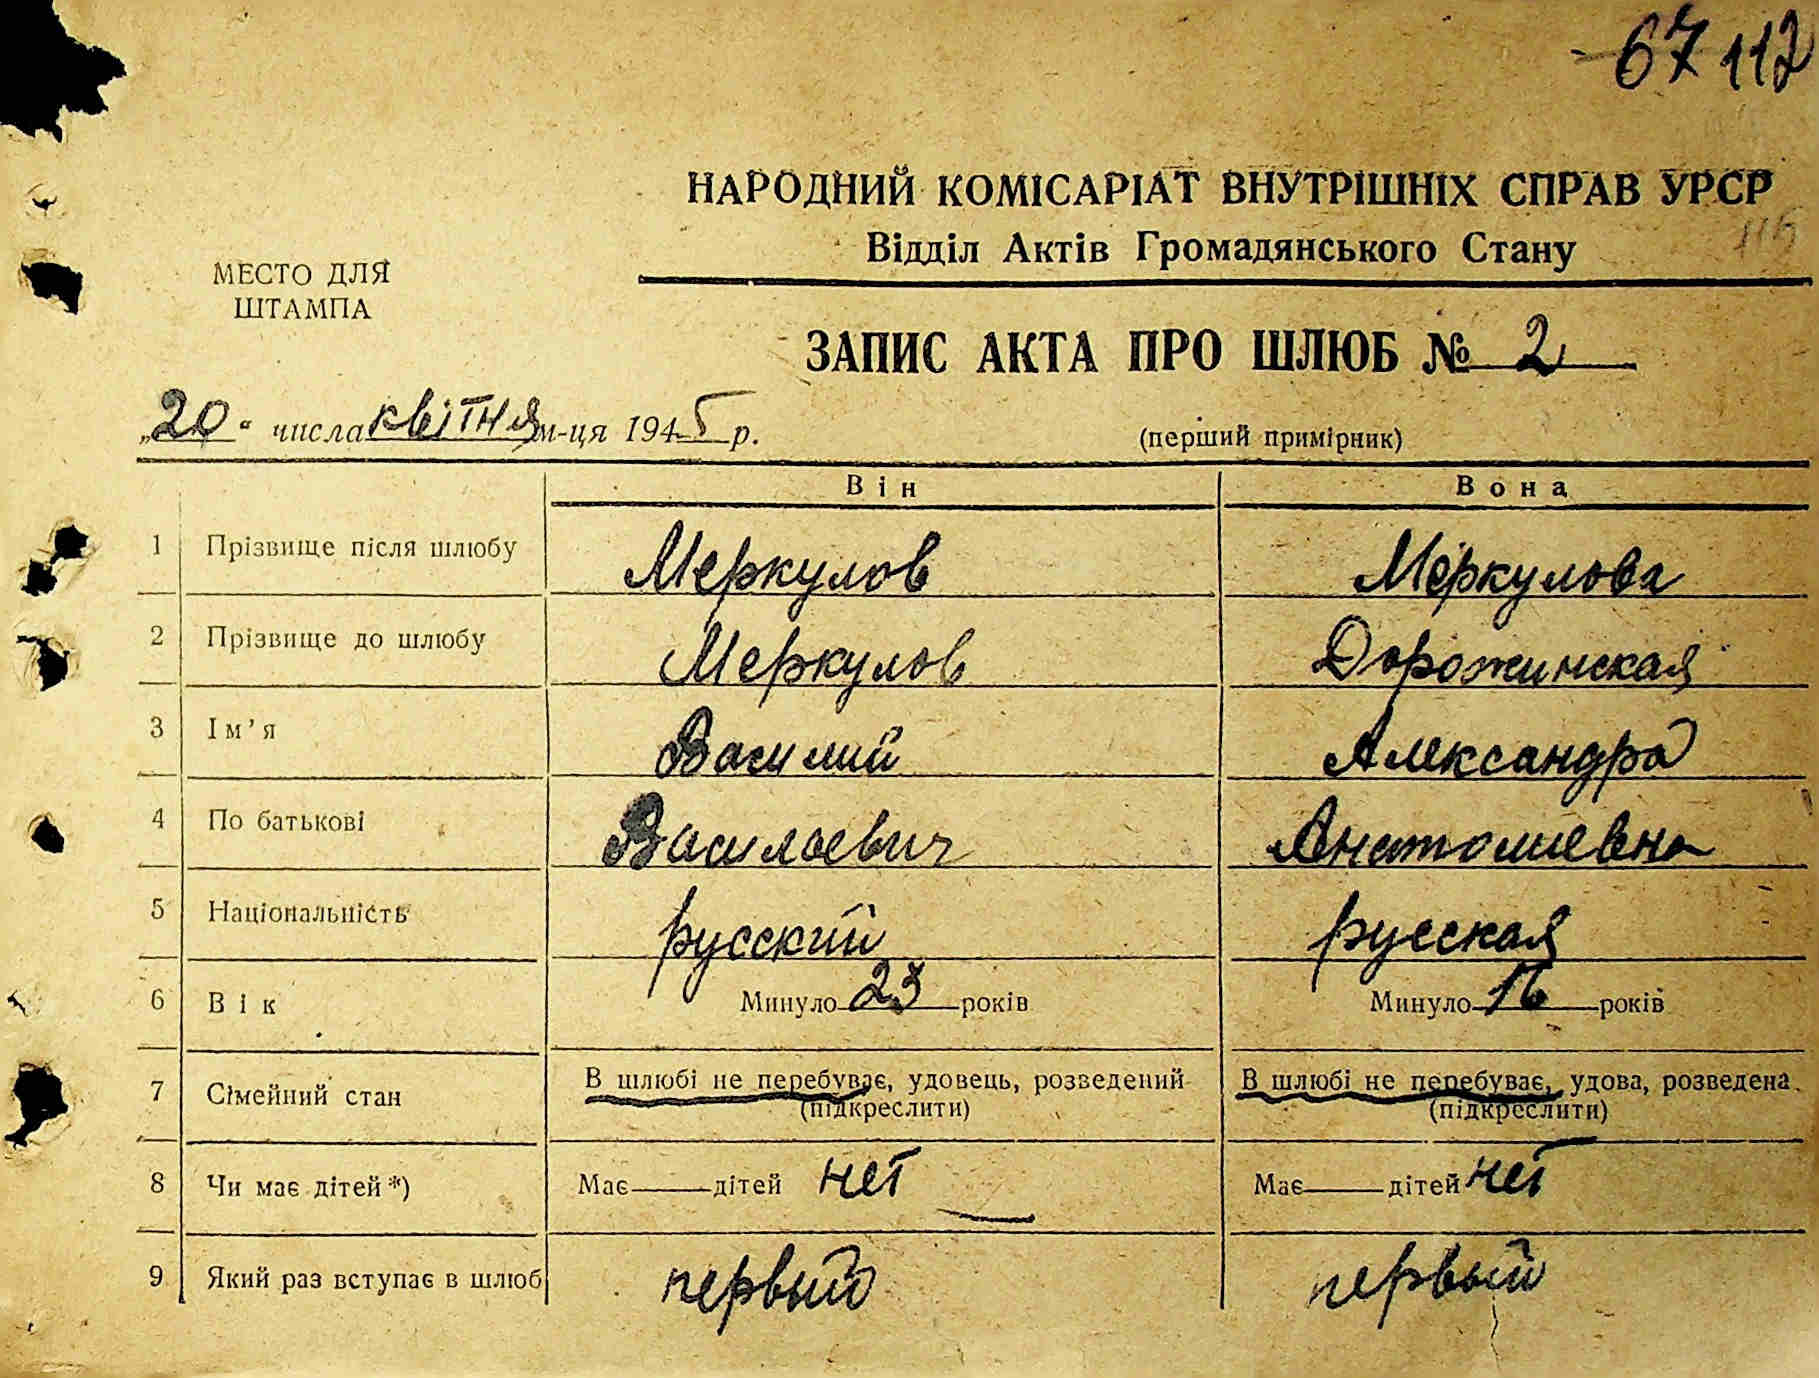 67 112
НАРОДНИЙ КОМІСАРІАТ ВНУТРІШНІХ СПРАВ УРСР
115
Відділ Актів Громадянського Стану
МЕСТО ДЛЯ
ШТАМПА
ЗАПИС АКТА ПРО ШЛЮБ № 2
„20“ числа квітня м-ця 1945 р.
(перший примірник)
Він Вона
1 Прізвище після шлюбу Меркулов Меркулова
2 Прізвище до шлюбу Меркулов Дорожинская
3 Ім’я Василий Александра
4 По батькові Васильевич Анатолиевна
5 Національність русский русская
6 Вік Минуло 23 років Минуло 16 років
7 Сімейний стан В шлюбі не перебуває, удовець, розведений В шлюбі не перебуває, удова, розведена
(підкреслити) (підкреслити)
8 Чи має дітей*) Має дітей нет Має дітей нет
9 Який раз вступає в шлюб первый первый